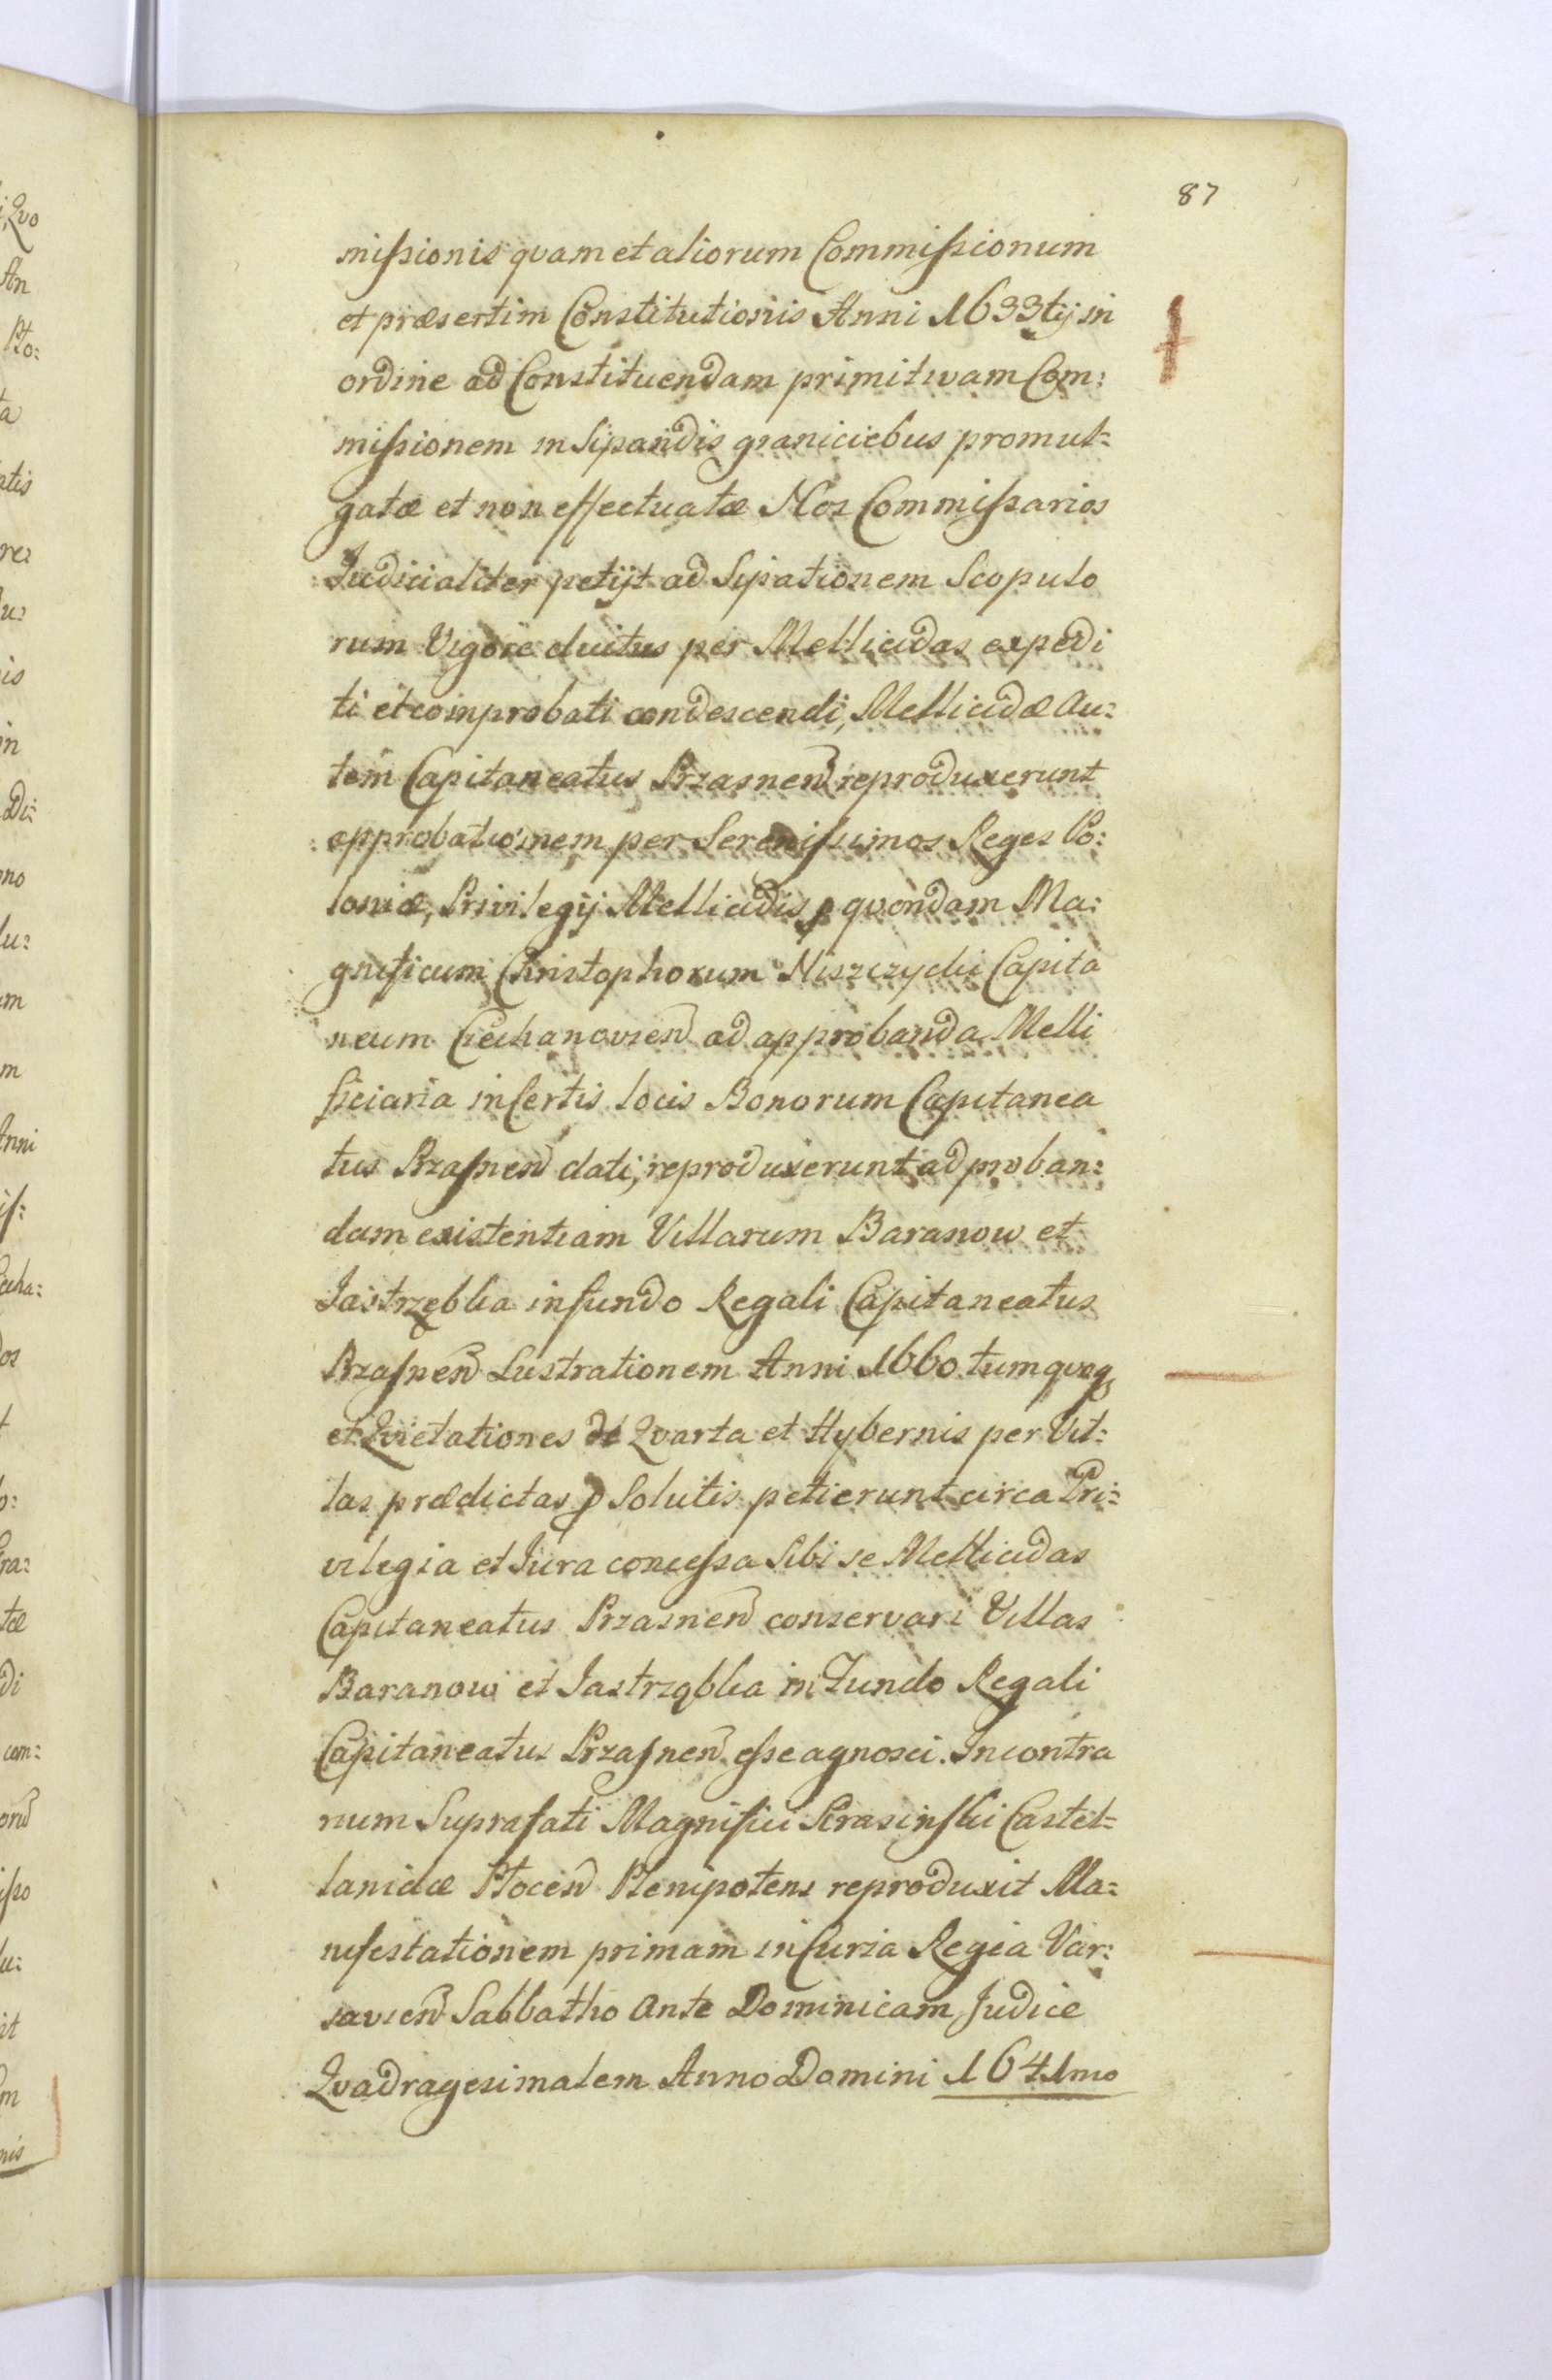 87
mißionis qvam et aliorum Commißionum
et præsertim Constitutionis Anni 1633tij in
ordine ad Constituendam primitivam Com:
mißionem in Sipandis graniciebus promul=
gatæ et non effectuatæ Nos Commißarios
Judicialiter petijt ad Sipationem Scopulo
rum Vigore ductus per Mellicidas expedi
ti et comprobati condescendi, Mellicidæ Au:
tem Capitaneatus Przasnen reproduxerunt
approbationem per Serenißimos Reges Po:
loniæ, Privilegij Mellicidis p qvondam Ma:
gnificum Christophorum Niszczycki Capita
neum Ciechanovien ad approbanda Melli
ficiaria in Certis locis Bonorum Capitanea
tus Przasnen dati, reproduxerunt ad proban=
dam existentiam Villarum Baranow et
Jastrzębka in fundo Regali Capitaneatus
Przasnen Lustrationem Anni 1660 tum qvoq
et Qvietationes de Qvarta et Hybernis per Vil:
las prædictas p Solutis petierunt circa Pri=
vilegia et Jura conceßa Sibi se Mellicidas
Capitaneatus Przasnen conservari Villas
Baranow et Jastrząbka in Fundo Regali
Capitaneatus Przasnen eße agnosci. In contra
rium Suprafati Magnifici Krasinski Castel=
lanidæ Plocen Plenipotens reproduxit Ma:
nifestationem primam in Curia Regia Var:
savien Sabbatho Ante Dominicam Judice
Qvadragesimalem Anno Domini 1641mo